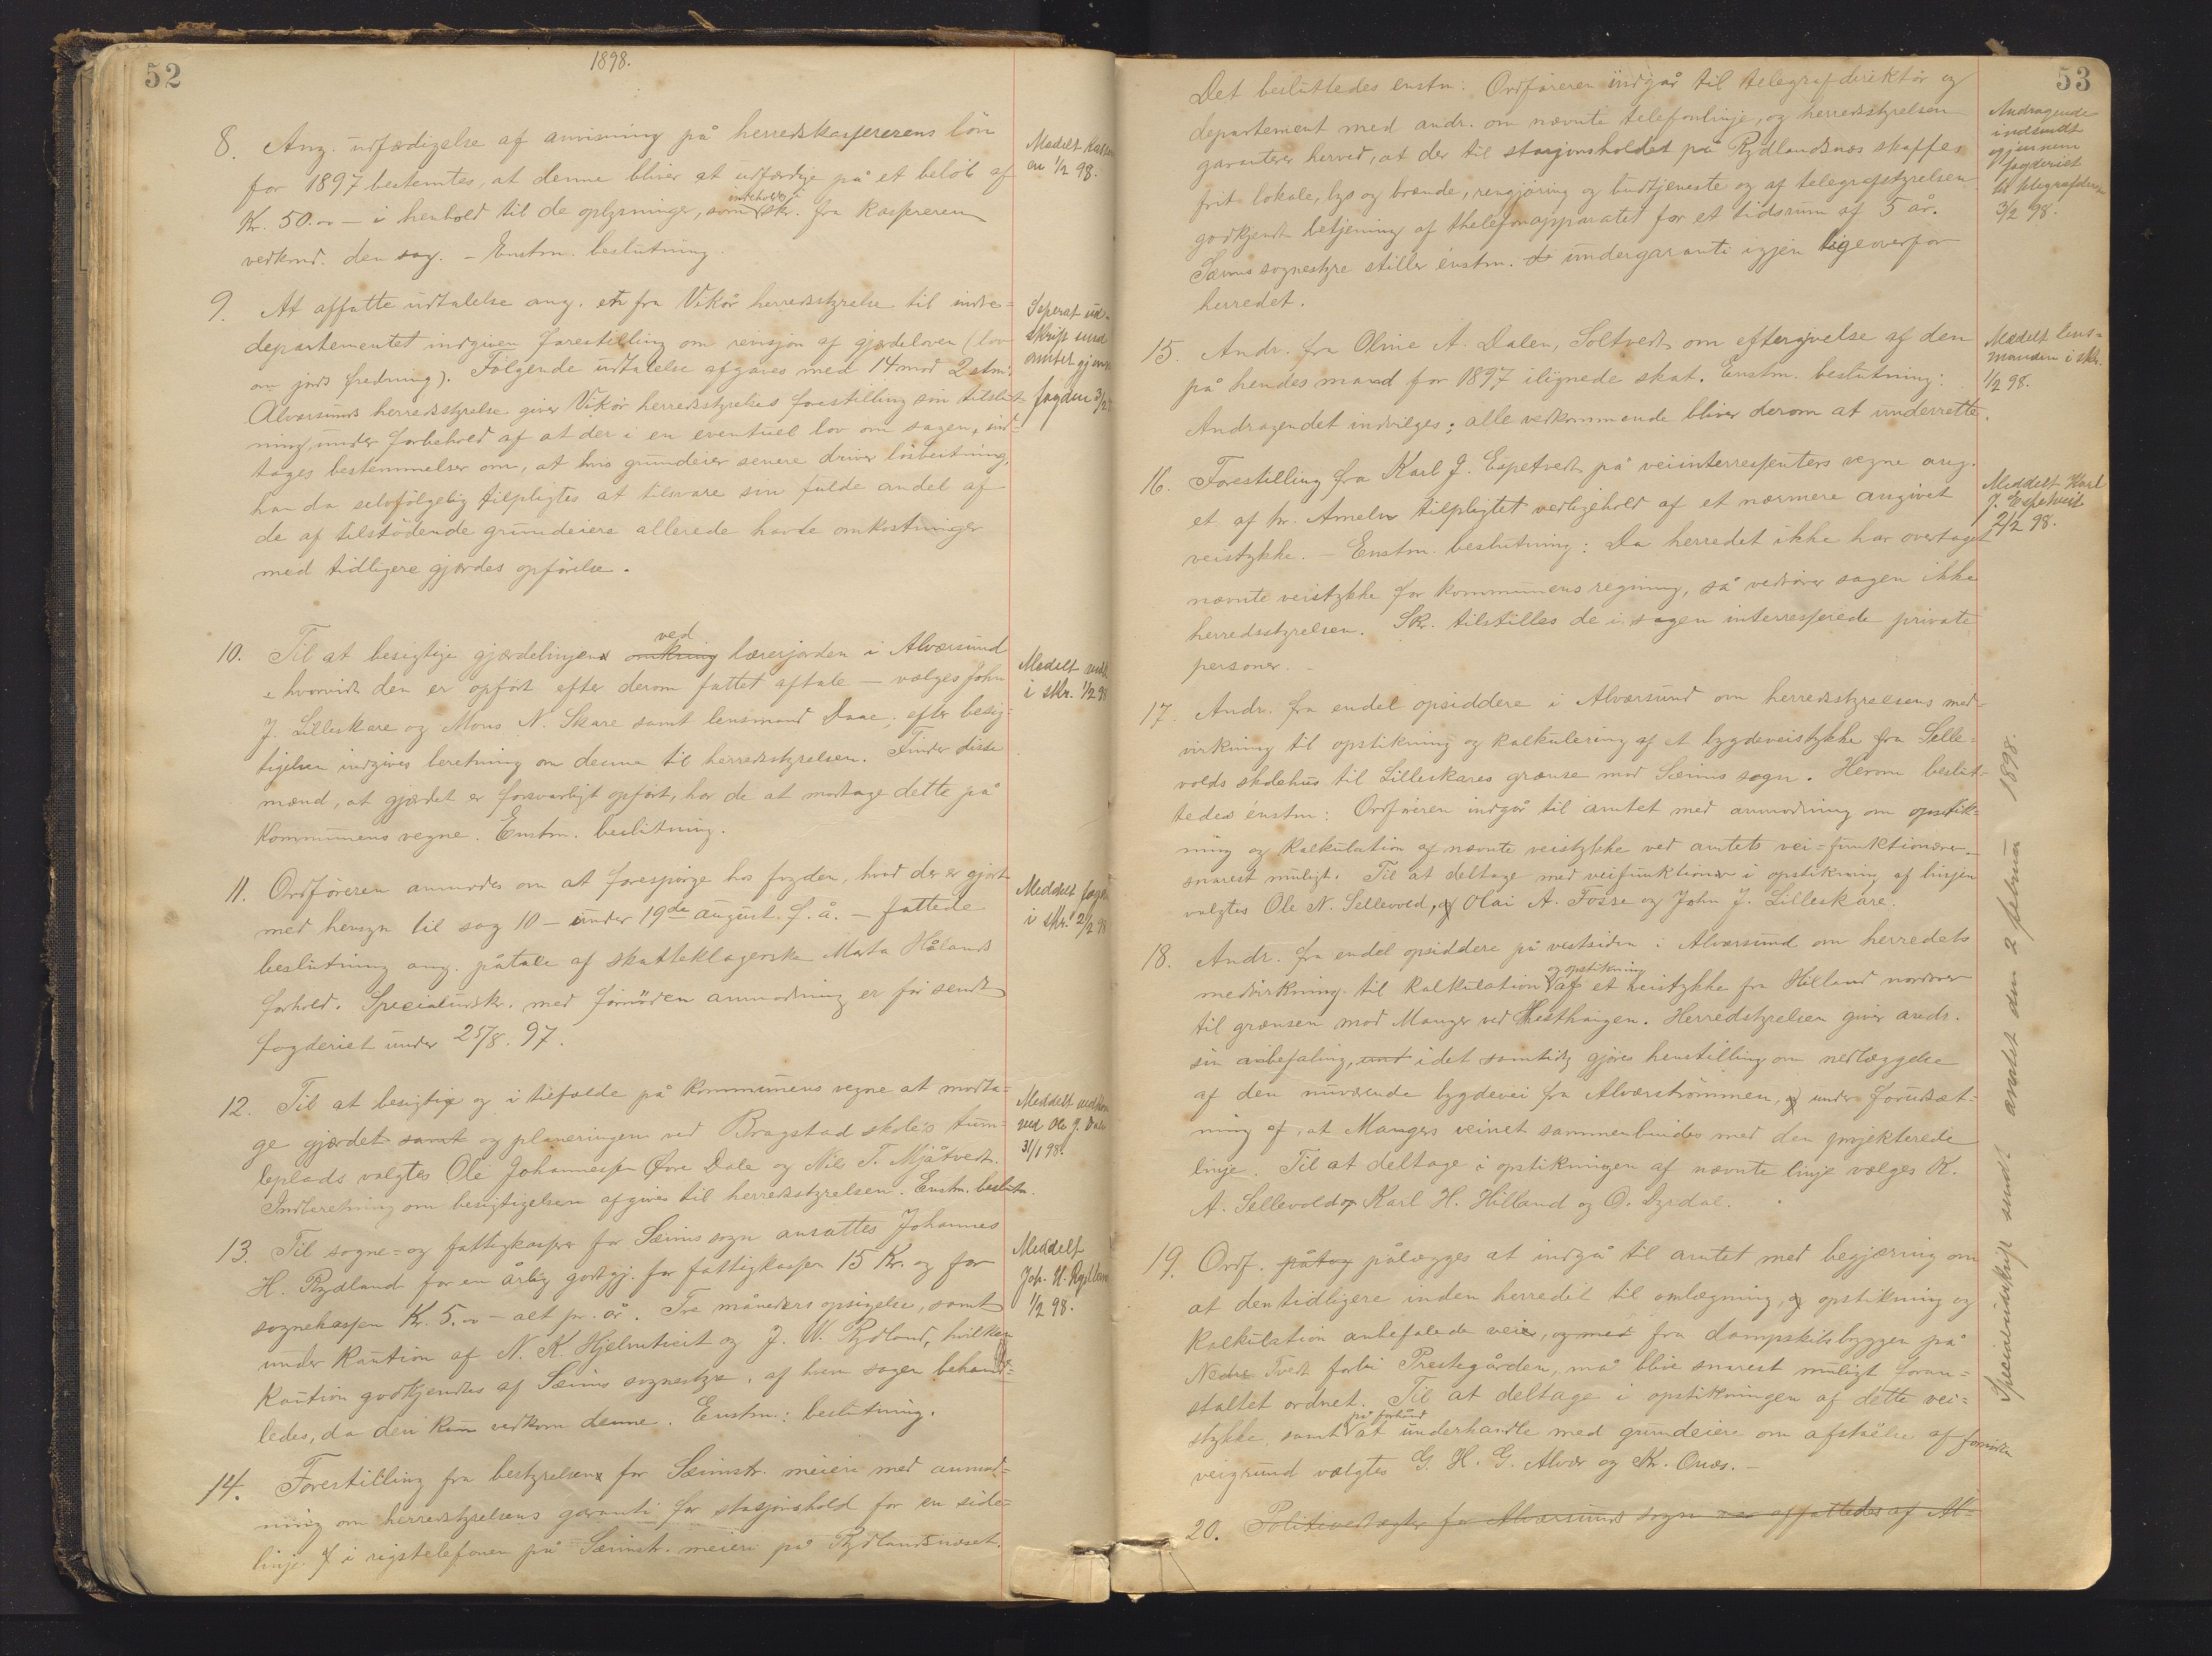 52
1898.
8. Ang. udfærdigelse af anvisning på herredskassererens løn
for 1897 bestemtes, at denne bliver at udfærdige på et beløb af
Kr. 50.00 – i henhold til de oplysninger, som indeholdes i skr. fra kassereren
vedkmd. den sag. – Enstm. beslutning.
Medelt Kasse
en 1/2 98.
9. At affatte udtalelse ang. en fra Vikør herredsstyrelse til indre=
departementet indgiven forestilling om revisjon af gjærdeloven (lov
om jords fredning). Følgende udtalelse afgaves med 14 mod 2 stm.
Alversunds herredsstyrelse giver Vikør herredsstyrelses forestilling sin tilslut
ning, under forbehold af at der i en eventuel lov om sagen, ind=
tages bestemmelser om, at hvis grundeier senere driver løsbeitning,
han da selvfølgelig tilpligtes at tilsvare sin fulde andel af
de af tilstødende grundeiere allerede havte omkostninger
med tidligere gjærdes opførelse.
Seperat ud=
skrift send
amtet gjenn
fogden 3/2
10. Til at besigtige gjærdelinjen omkring ved lærerjorden i Alversund
– hvorvidt den er opført efter derom fattet aftale – vælges John
J. Lilleskare og Mons N. Skare samt lensmand Daae; efter besig=
tigelsen indgives beretning om denne til herredsstyrelsen. Finder disse
mænd, at gjærdet er forsvarligt opført, har de at modtage dette på
kommunens vegne. Enstm. beslutning.
Medelt vedk
i skr. 1/2 98
11. Ordføreren anmodes om at forespørge hos fogden, hvad der er gjort
med hensyn til sag 10 – under 19de august f. å. – fattede
beslutning ang. påtale af skatteklagerske Marta Hålands
forhold. Specialudskr. med fornøden anmodning er før sendt
fogderiet under 25/8. 97.
Meddelt fogd
i skr. 2/2 98
12. Til at besigtige og i tilfælde på kommunens vegne at modta=
ge gjærdet samt og planeringen ved Bragstad skole's tum=
leplads valgtes Ole Johannessen Øvre Dale og Nils T. Mjåtvedt.
Indberetning om besigtigelsen afgives til herredsstyrelsen. Enstm. beslutn.
Meddelt vedkom
ved Ole J. Dale
31/1 98.
13. Til sogne= og fattigkasserer for Seims sogn ansattes Johannes
H. Rydland for en årlig godtgj. for fattigkassen 15 Kr. og for
sognekassen Kr. 5.00 – alt pr. år. Tre måneders opsigelse, samt
under kaution af N. K. Hjelmtveit og J. W. Rydland, hvilken
kaution godkjendtes af Seims sognestyre, af hvem sagen behand=
ledes, da den kun vedkom denne. Enstm.: beslutning.
Meddelt
Joh. H. Rydland
1/2 98.
14. Forestilling fra bestyrelsen for Seimstr. meieri med anmod=
ning om herredsstyrelsens garanti for stasjonshold for en side=
linje af i rigstelefonen på Seimstr. meieri på Rydlandsnæset.
53
Det besluttedes enstm: Ordføreren indgår til telegrafdirektør og
departement med andr. om nævnte telefonlinje, og herredsstyrelsen
garanterer herved, at der til stasjonsholdet på Rydlandsnæs skaffes
frit lokale, lys og brænde, rengjøring og budtjeneste og af telegrafstyrelsen
godkjendt betjening af thelefonapparatet for et tidsrum af 5 år.
Seims sognestyre stiller enstm. undergaranti igjen ligeoverfor
herredet.
Andragende
indsendt
gjennem
fogderiet
til telegrafdirek
3/2 98.
15. Andr. fra Oline A. Dalen, Soltvedt om eftergivelse af den
på hendes mand for 1897 ilignede skat. Enstm. beslutning:
Andragendet indvilges; alle vedkommende bliver derom at underrette.
Medelt lens=
manden i skr.
1/2 98.
16. Forestilling fra Karl J. Espetvedt på veiinterressenters vegne ang.
et af hr. Ameln tilpligtet vedligehold af et nærmere angivet
veistykke. – Enstm. beslutning: Da herredet ikke har overtaget
nævnte veistykke for kommunens regning, så vedrører sagen ikke
herredsstyrelsen. Skr. tilstilles de i sagen interresserede private
personer. –
Meddelt Karl
J. Espetveit
2/2 98.
17. Andr. fra endel opsiddere i Alversund om herredsstyrelsens med-
virkning til opstikning og kalkulering af et bygdeveistykke fra Selle=
volds skolehus til Lilleskares grænse mod Seims sogn. Herom beslut=
tedes enstm: Ordføreren indgår til amtet med anmodning om opstik=
ning og kalkulation af nævnte veistykke ved amtets vei=funktionærer
snarest muligt. Til at deltage med veifunktionær i opstikning af linjen
valgtes Ole N. Sellevold, og Olai A. Fosse og John J. Lilleskare.
18. Andr. fra endel opsiddere på vestsiden i Alversund om herredets
medvirkning til kalkulation og opstikning af et veistykke fra Hilland nordover
til grænsen mod Manger ved Hesthaugen. Herredstyrelsen giver andr.
sin anbefaling, idet samtidig gjøres henstilling om nedlæggelse
af den nuværende bygdevei fra Alverstrømmen, og under forudsæt=
ning af, at Mangers veinet sammenbindes med den projekterede
linje. Til at deltage i opstikningen af nævnte linje vælges K.
A. Sellevold og Karl H. Hilland og O. Dyrdal.
19. Ordf. påtog pålægges at indgå til amtet med begjæring om
at den tidligere inden herredet til omlægning, og opstikning og
kalkulation anbefalede vei, og med fra dampskibsbryggen på
Nedre Tvedt forbi Prestegården, må blive snarest muligt foran=
staltet ordnet. Til at deltage i opstikningen af dette vei=
stykke, samt på forhånd at underhandle med grundeiere om afståelse af fornøden
veigrund valgtes G. H. G. Alver og Kr. Onæs. –
20. Politivedtægter for Alversunds sogn affattedes af Al=
Specialudskrift sendt amtet den 2 februar 1898.